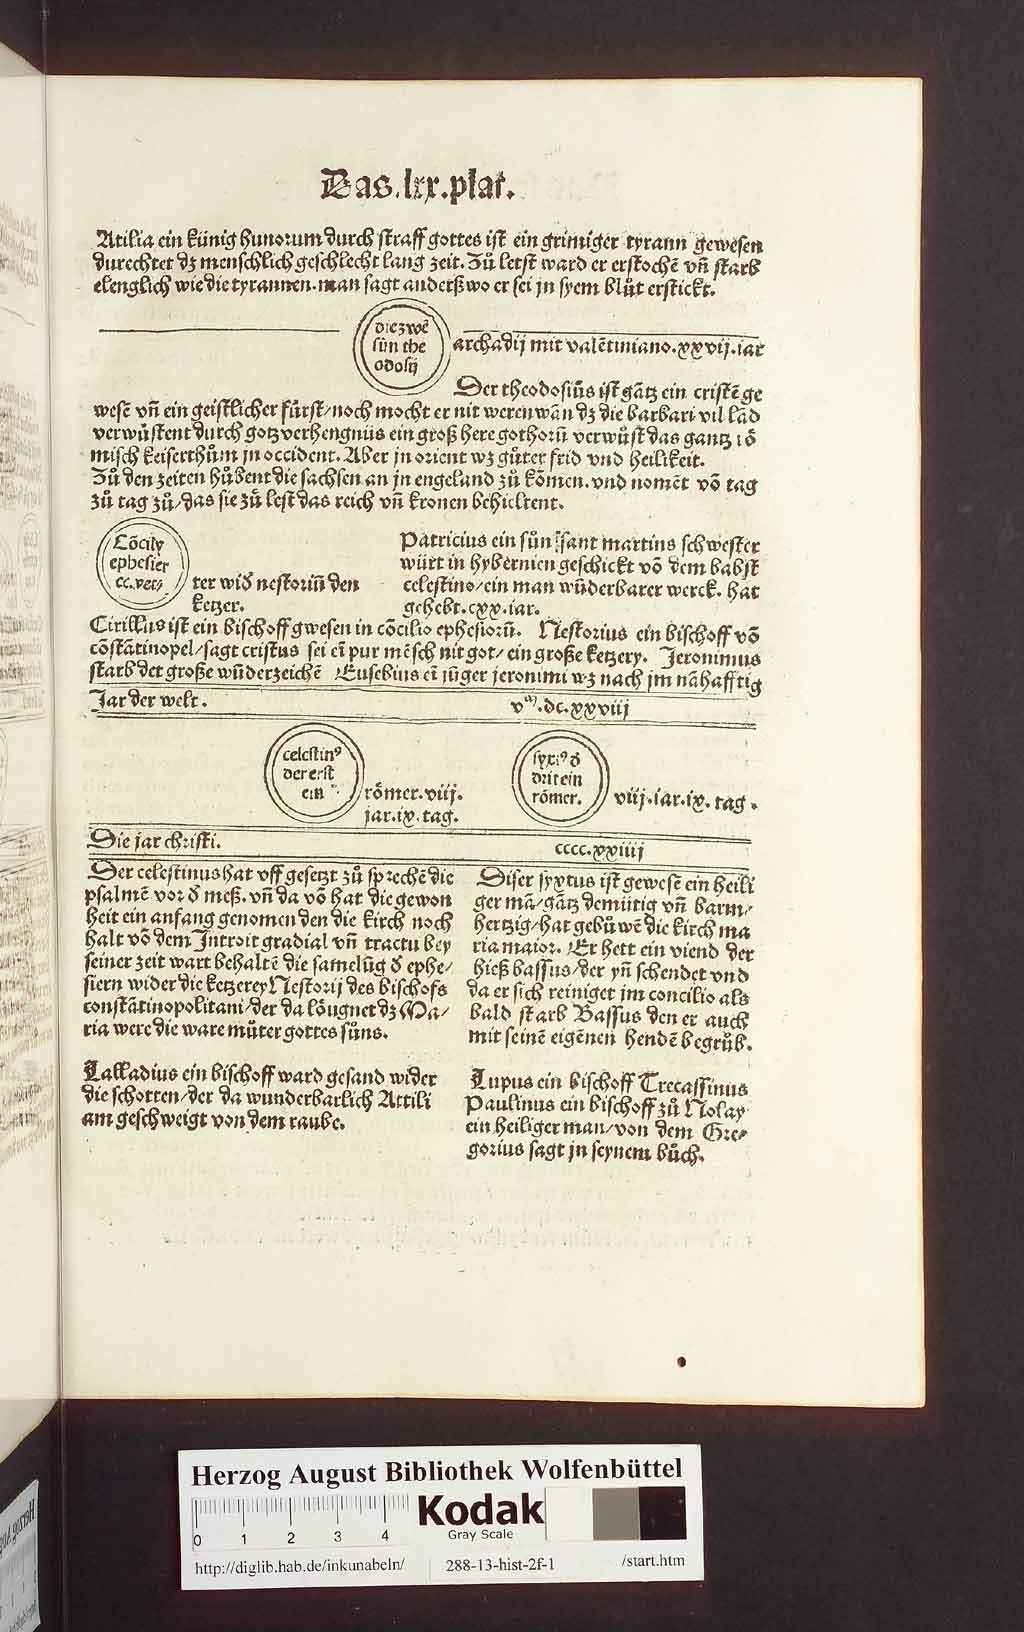 Das.lxx.plat.
Attilia ein künig hunorum durch straff gottes ist ein grimiger tyrann gewesen
durechtet dz menschlich geschlecht lang zeit. Zů letst ward er erstochẽ vñ starb
elenglich wie die tyrannen. man sagt anderß wo er sei jn syem blůt erstickt.
die zwẽ
sün the
odosij
archadij mit valẽtiniano. xxvij. iar
Der theodosiůs ist gãtz ein cristẽ ge
wesẽ vñ ein geistlicher fürst/noch mocht er nit weren wan dz die barbari vil lãd
verwüstent durch gotz verhengnüs ein groß here gothorũ verwůst das gantz rö
misch keiserthům jn occident. Aber jn orient wz gůter frid vnd heilikeit.
Zů den zeiten hůbent die sachsen an jn engeland zů kõmen. vnd nomẽt võ tag
zů tag zů/das sie zů lest das reich vñ kronen behieltent.
Cõcily
ephesier
cc.vet/
ter wid̾ nestoriũ den
ketzer.
Patricius ein sůn sant martins schwester
würt in hybernien geschickt võ dem babst
celestino/ein man wũderbarer werck. hat
gehebt. cxx. iar.
Cirillus ist ein bischoff gwesen in cõcilio ephesiorũ. Nestorius ein bischoff võ
cõstãtinopel/sagt cristus sei eĩ pur mẽsch nit got/ ein große ketzery. Jeronimus
starb der große wũderzeichẽ Eusebius eĩ jũger jeronimi wz nach jm nãhafftig
Jar der welt.
vᵐ. dc. xxviij
celestinꝰ
der erst
ein
römer. viij.
jar. ix. tag.
syxtꝰ d̾
drit ein
römer.
viij. iar. ix. tag.
Die jar christi.
cccc. xxiiij
Der celestinus hat vff gesetzt zů sprechẽ die
psalmẽ vor d̾ meß. vñ da võ hat die gewon
heit ein anfang genomen den die kirch noch
halt võ dem Introit gradial vñ tractu bey
seiner zeit wart behaltẽ die samelũg d̾ ephe/
siern wider die ketzerey Nestorij des bischofs
constãtinopolitani/der da löugnet dz Ma/
ria were die ware můter gottes sůns.
Palladius ein bischoff ward gesand wider
die schotten/der da wunderbarlich Attili
am geschweigt von dem raube.
Diser syxtus ist gewesẽ ein heili
ger mã/gãtz demütig vñ barm/
hertzig/hat gebůwẽ die kirch ma
ria maior. Er hett ein viend der
hieß bassus/der yñ schendet vnd
da er sich reiniget jm concilio als
bald starb Bassus den er auch
mit seinẽ eigẽnen hendẽ begrůb.
Lupus ein bischoff Trecassinus
Paulinus ein bischoff zů Nolay
ein heiliger man/von dem Gre/
gorius sagt jn seynem bůch.
Herzog August Bibliothek Wolfenbüttel
0 1 2 3 4
Kodak
Gray Scale
http://diglib.hab.de/inkunabeln/ 288-13-hist-2f-1 /start.htm